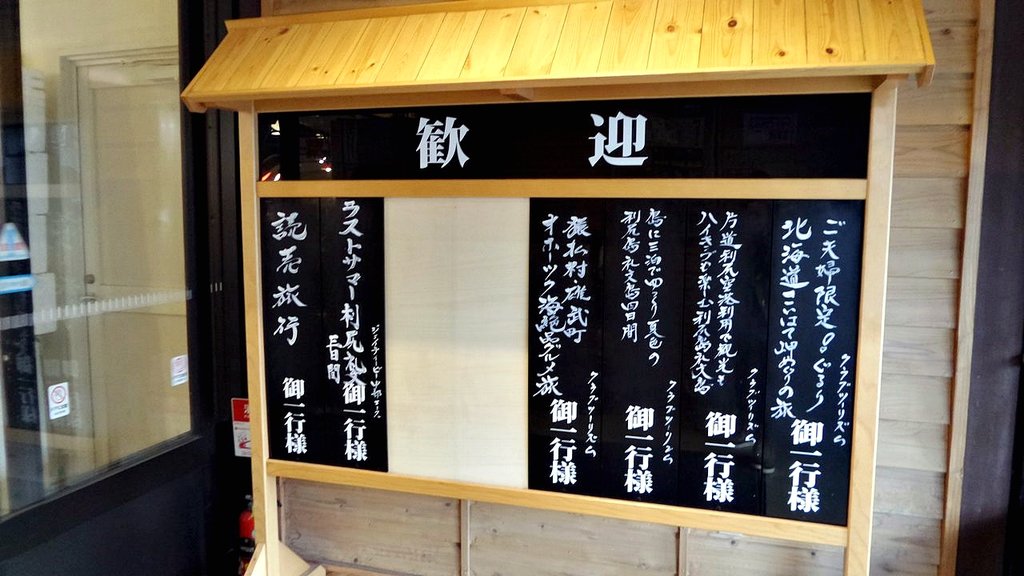 歓迎
ご夫婦限定 ぐるり
北海道 岬めぐりの旅
クラブツーリズム
御一行様
片道利尻空港利用で観光も
ハイキングも楽しむ利尻島礼文島
クラブツーリズム
御一行様
島に三泊でゆっくり夏色の
利尻島礼文島四日間
クラブツーリズム
御一行様
猿払村雄武町
オホーツク海グルメ旅
クラブツーリズム
御一行様
ラストサマー利尻
三日間
御一行様
読売旅行
御一行様